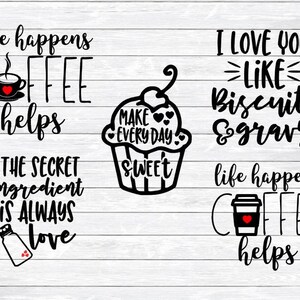 e happens
FFEE
helps
MAKE
EVERY DAY
SWEET
I LOVE YO
LIKE
Biscuit
& gravy
THE SECRET
ngredient
IS ALWAYS
love
life happe
C FFE
helps